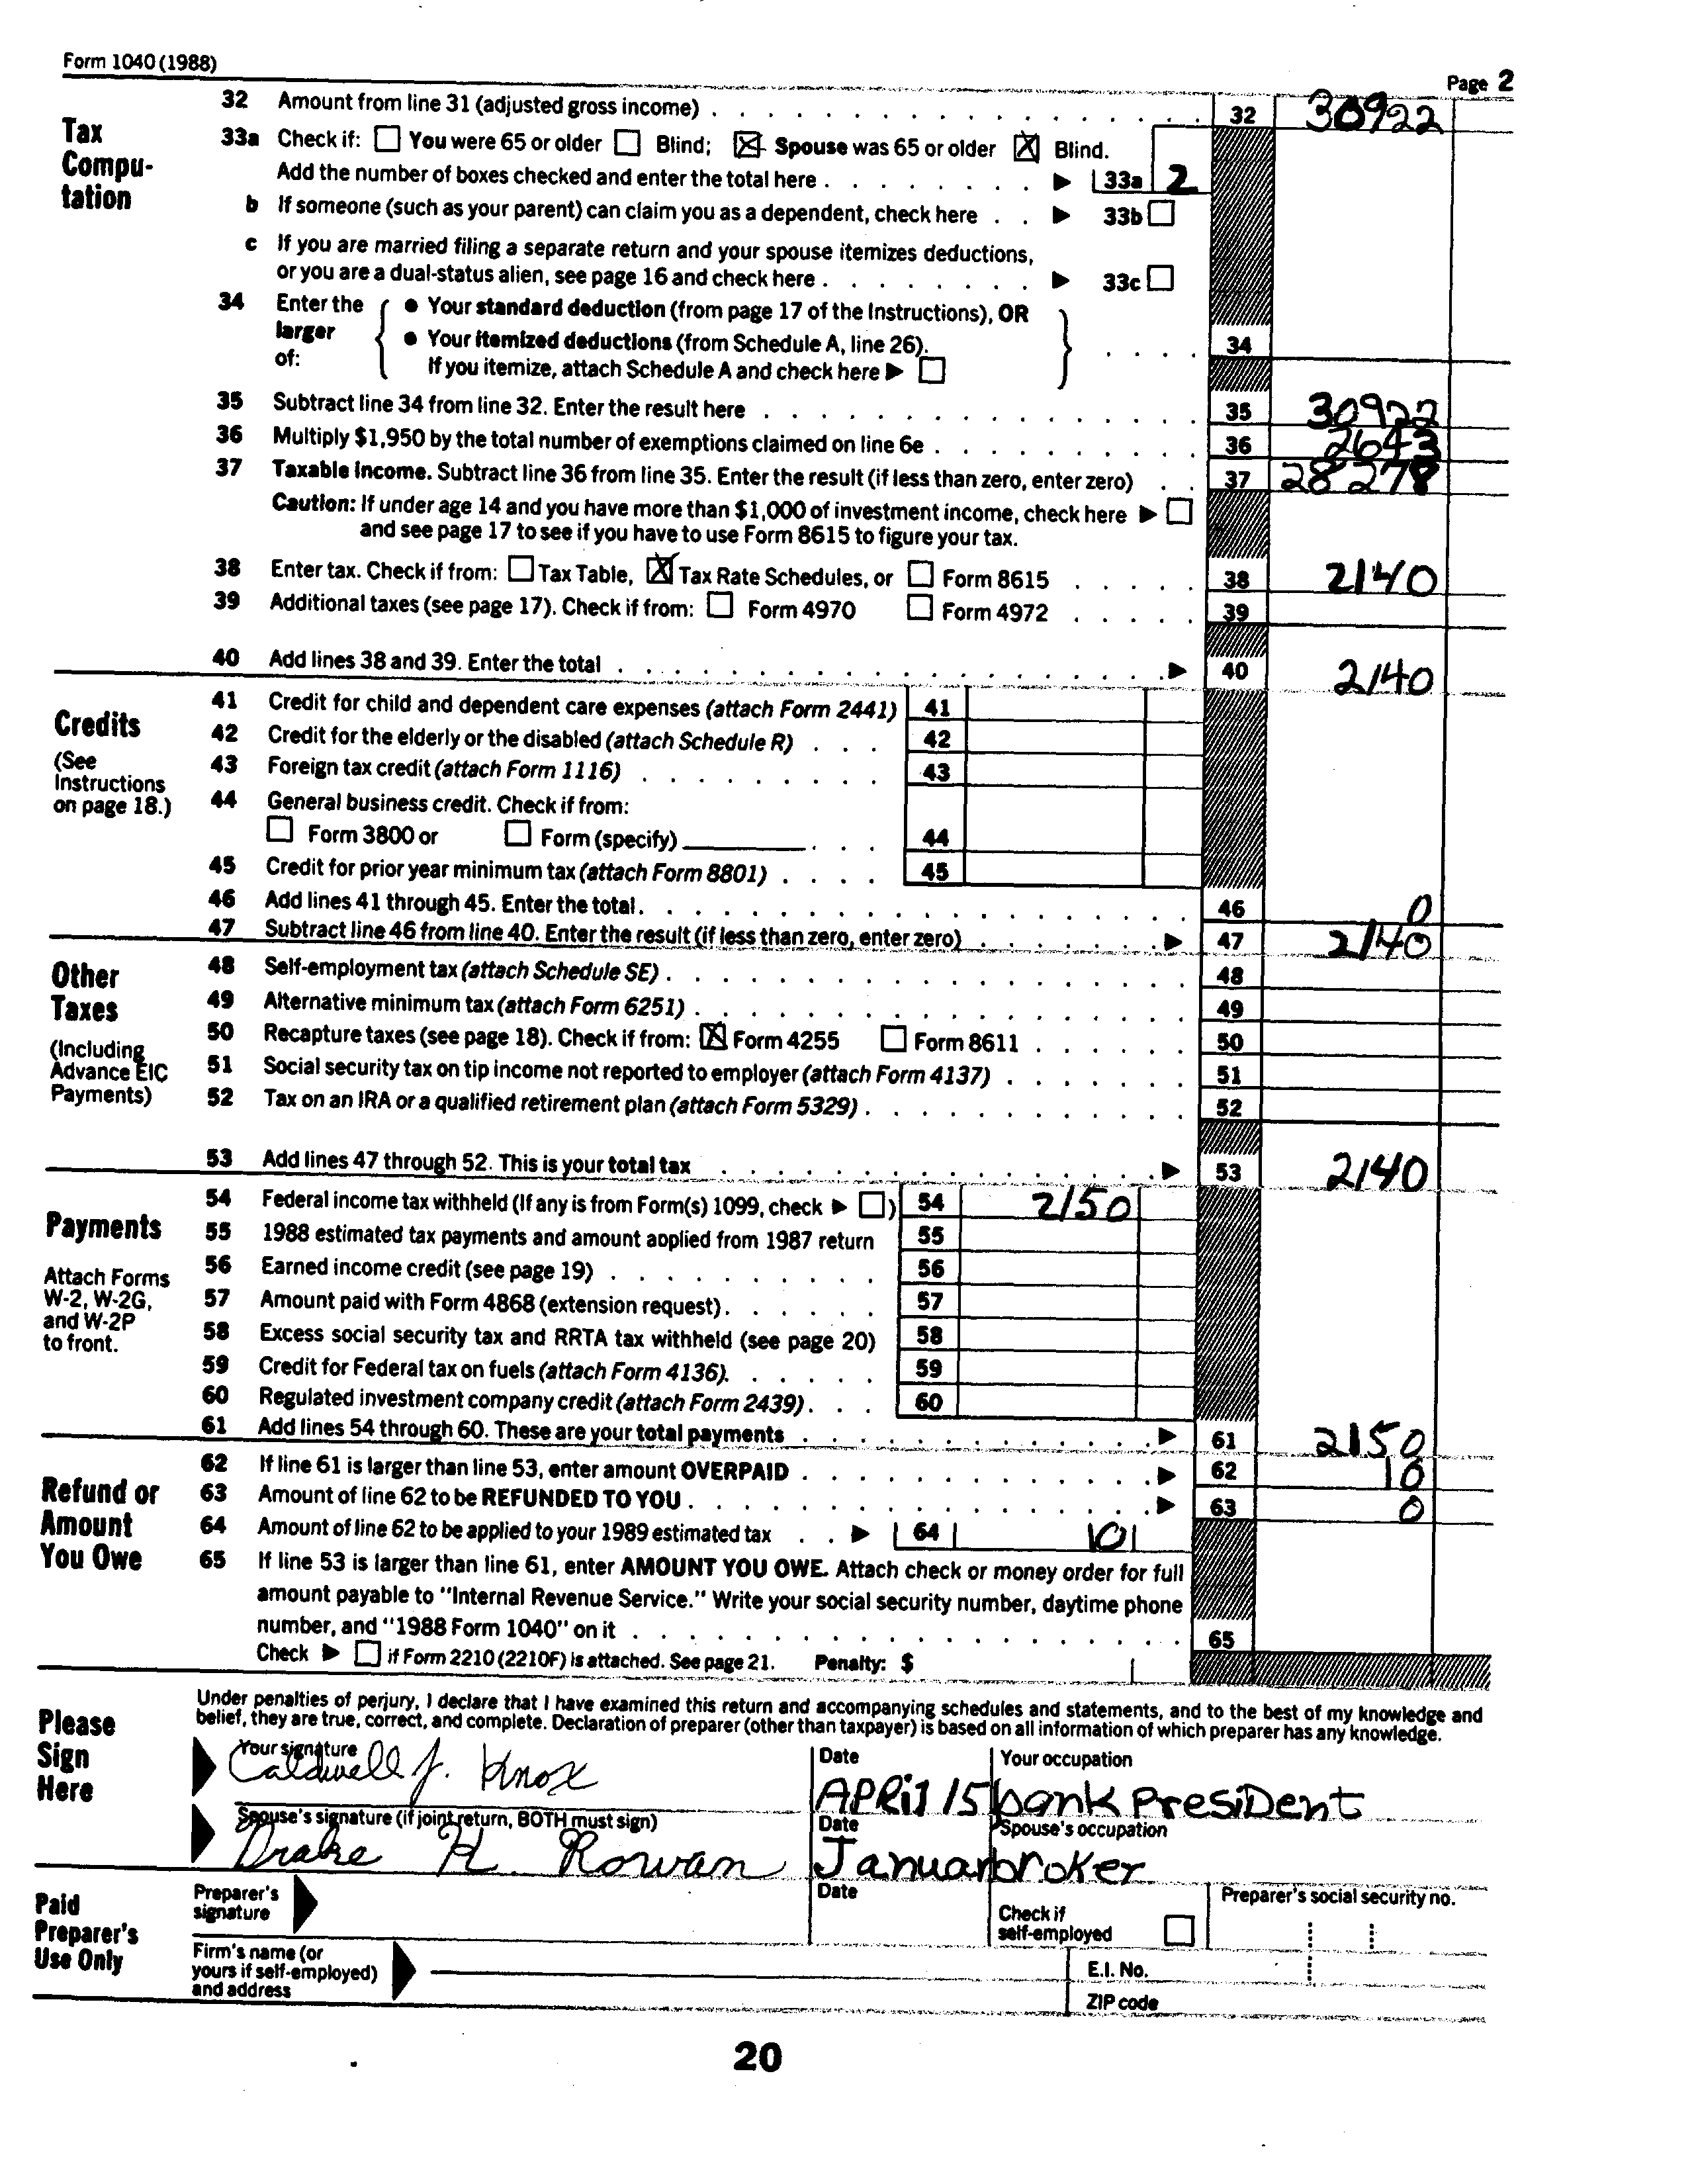 Form 1040 (1988)
Page 2
Tax Compu-tation
32 Amount from line 31 (adjusted gross income) 32 30922
33a Check if: You were 65 or older Blind; Spouse was 65 or older Blind.
Add the number of boxes checked and enter the total here 33a 2
b If someone (such as your parent) can claim you as a dependent, check here 33b
c If you are married filing a separate return and your spouse itemizes deductions,
or you are a dual-status alien, see page 16 and check here 33c
34 Enter the larger of:
• Your standard deduction (from page 17 of the Instructions), OR
• Your itemized deductions (from Schedule A, line 26).
If you itemize, attach Schedule A and check here
34
35 Subtract line 34 from line 32. Enter the result here 35 30922
36 Multiply $1,950 by the total number of exemptions claimed on line 6e 36 2643
37 Taxable income. Subtract line 36 from line 35. Enter the result (if less than zero, enter zero) 37 28278
Caution: If under age 14 and you have more than $1,000 of investment income, check here
and see page 17 to see if you have to use Form 8615 to figure your tax.
38 Enter tax. Check if from: Tax Table, Tax Rate Schedules, or Form 8615 38 2140
39 Additional taxes (see page 17). Check if from: Form 4970 Form 4972 39
40 Add lines 38 and 39. Enter the total 40 2140
Credits
(See Instructions on page 18.)
41 Credit for child and dependent care expenses (attach Form 2441) 41
42 Credit for the elderly or the disabled (attach Schedule R) 42
43 Foreign tax credit (attach Form 1116) 43
44 General business credit. Check if from:
Form 3800 or Form (specify) 44
45 Credit for prior year minimum tax (attach Form 8801) 45
46 Add lines 41 through 45. Enter the total. 46 0
47 Subtract line 46 from line 40. Enter the result (if less than zero, enter zero) 47 2140
Other Taxes
(Including Advance EIC Payments)
48 Self-employment tax (attach Schedule SE) 48
49 Alternative minimum tax (attach Form 6251) 49
50 Recapture taxes (see page 18). Check if from: Form 4255 Form 8611 50
51 Social security tax on tip income not reported to employer (attach Form 4137) 51
52 Tax on an IRA or a qualified retirement plan (attach Form 5329) 52
53 Add lines 47 through 52. This is your total tax 53 2140
Payments
Attach Forms W-2, W-2G, and W-2P to front.
54 Federal income tax withheld (If any is from Form(s) 1099, check ) 54 2150
55 1988 estimated tax payments and amount applied from 1987 return 55
56 Earned income credit (see page 19) 56
57 Amount paid with Form 4868 (extension request) 57
58 Excess social security tax and RRTA tax withheld (see page 20) 58
59 Credit for Federal tax on fuels (attach Form 4136). 59
60 Regulated investment company credit (attach Form 2439) 60
61 Add lines 54 through 60. These are your total payments 61 2150
Refund or Amount You Owe
62 If line 61 is larger than line 53, enter amount OVERPAID 62 10
63 Amount of line 62 to be REFUNDED TO YOU 63 0
64 Amount of line 62 to be applied to your 1989 estimated tax 64 10
65 If line 53 is larger than line 61, enter AMOUNT YOU OWE. Attach check or money order for full
amount payable to "Internal Revenue Service." Write your social security number, daytime phone
number, and "1988 Form 1040" on it 65
Check if Form 2210 (2210F) is attached. See page 21. Penalty: $
Please Sign Here
Under penalties of perjury, I declare that I have examined this return and accompanying schedules and statements, and to the best of my knowledge and
belief, they are true, correct, and complete. Declaration of preparer (other than taxpayer) is based on all information of which preparer has any knowledge.
Your signature Date Your occupation
Caldwell J. Knox APRil 15 bank PresiDent
Spouse's signature (if joint return, BOTH must sign) Date Spouse's occupation
Drake H. Rowan Januar broker
Paid Preparer's Use Only
Preparer's signature Date Check if self-employed Preparer's social security no.
Firm's name (or yours if self-employed) and address
E.I. No.
ZIP code
20